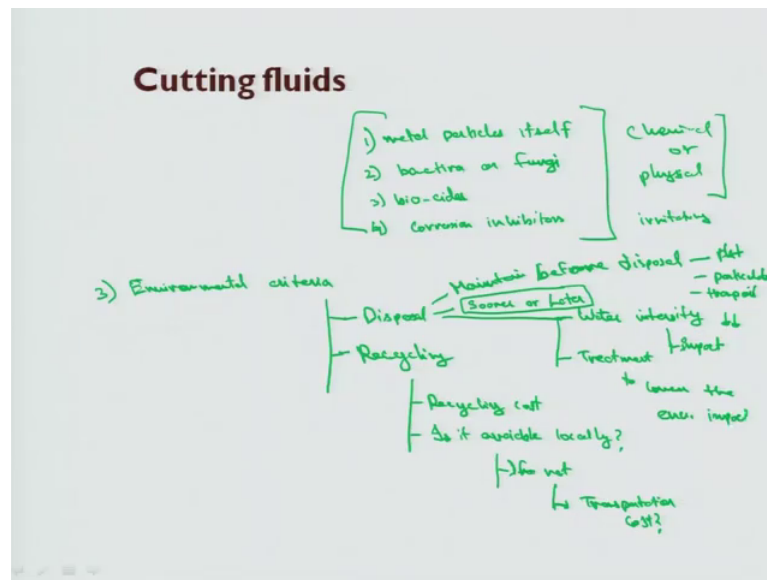 Cutting fluids
1) metal particles itself
2) bactira or fungi
3) bio-cides
4) Corrosion inhibitors
Chemical
or
physical
irritating
3) Environmental criteria
Maintain before disposal
particulate
Sooner or Later
Disposal
intensity
impact
Treatment
to lower the
env. impact
Recycling
Recycling cost
Is it available locally?
If not
Transportation
cost?